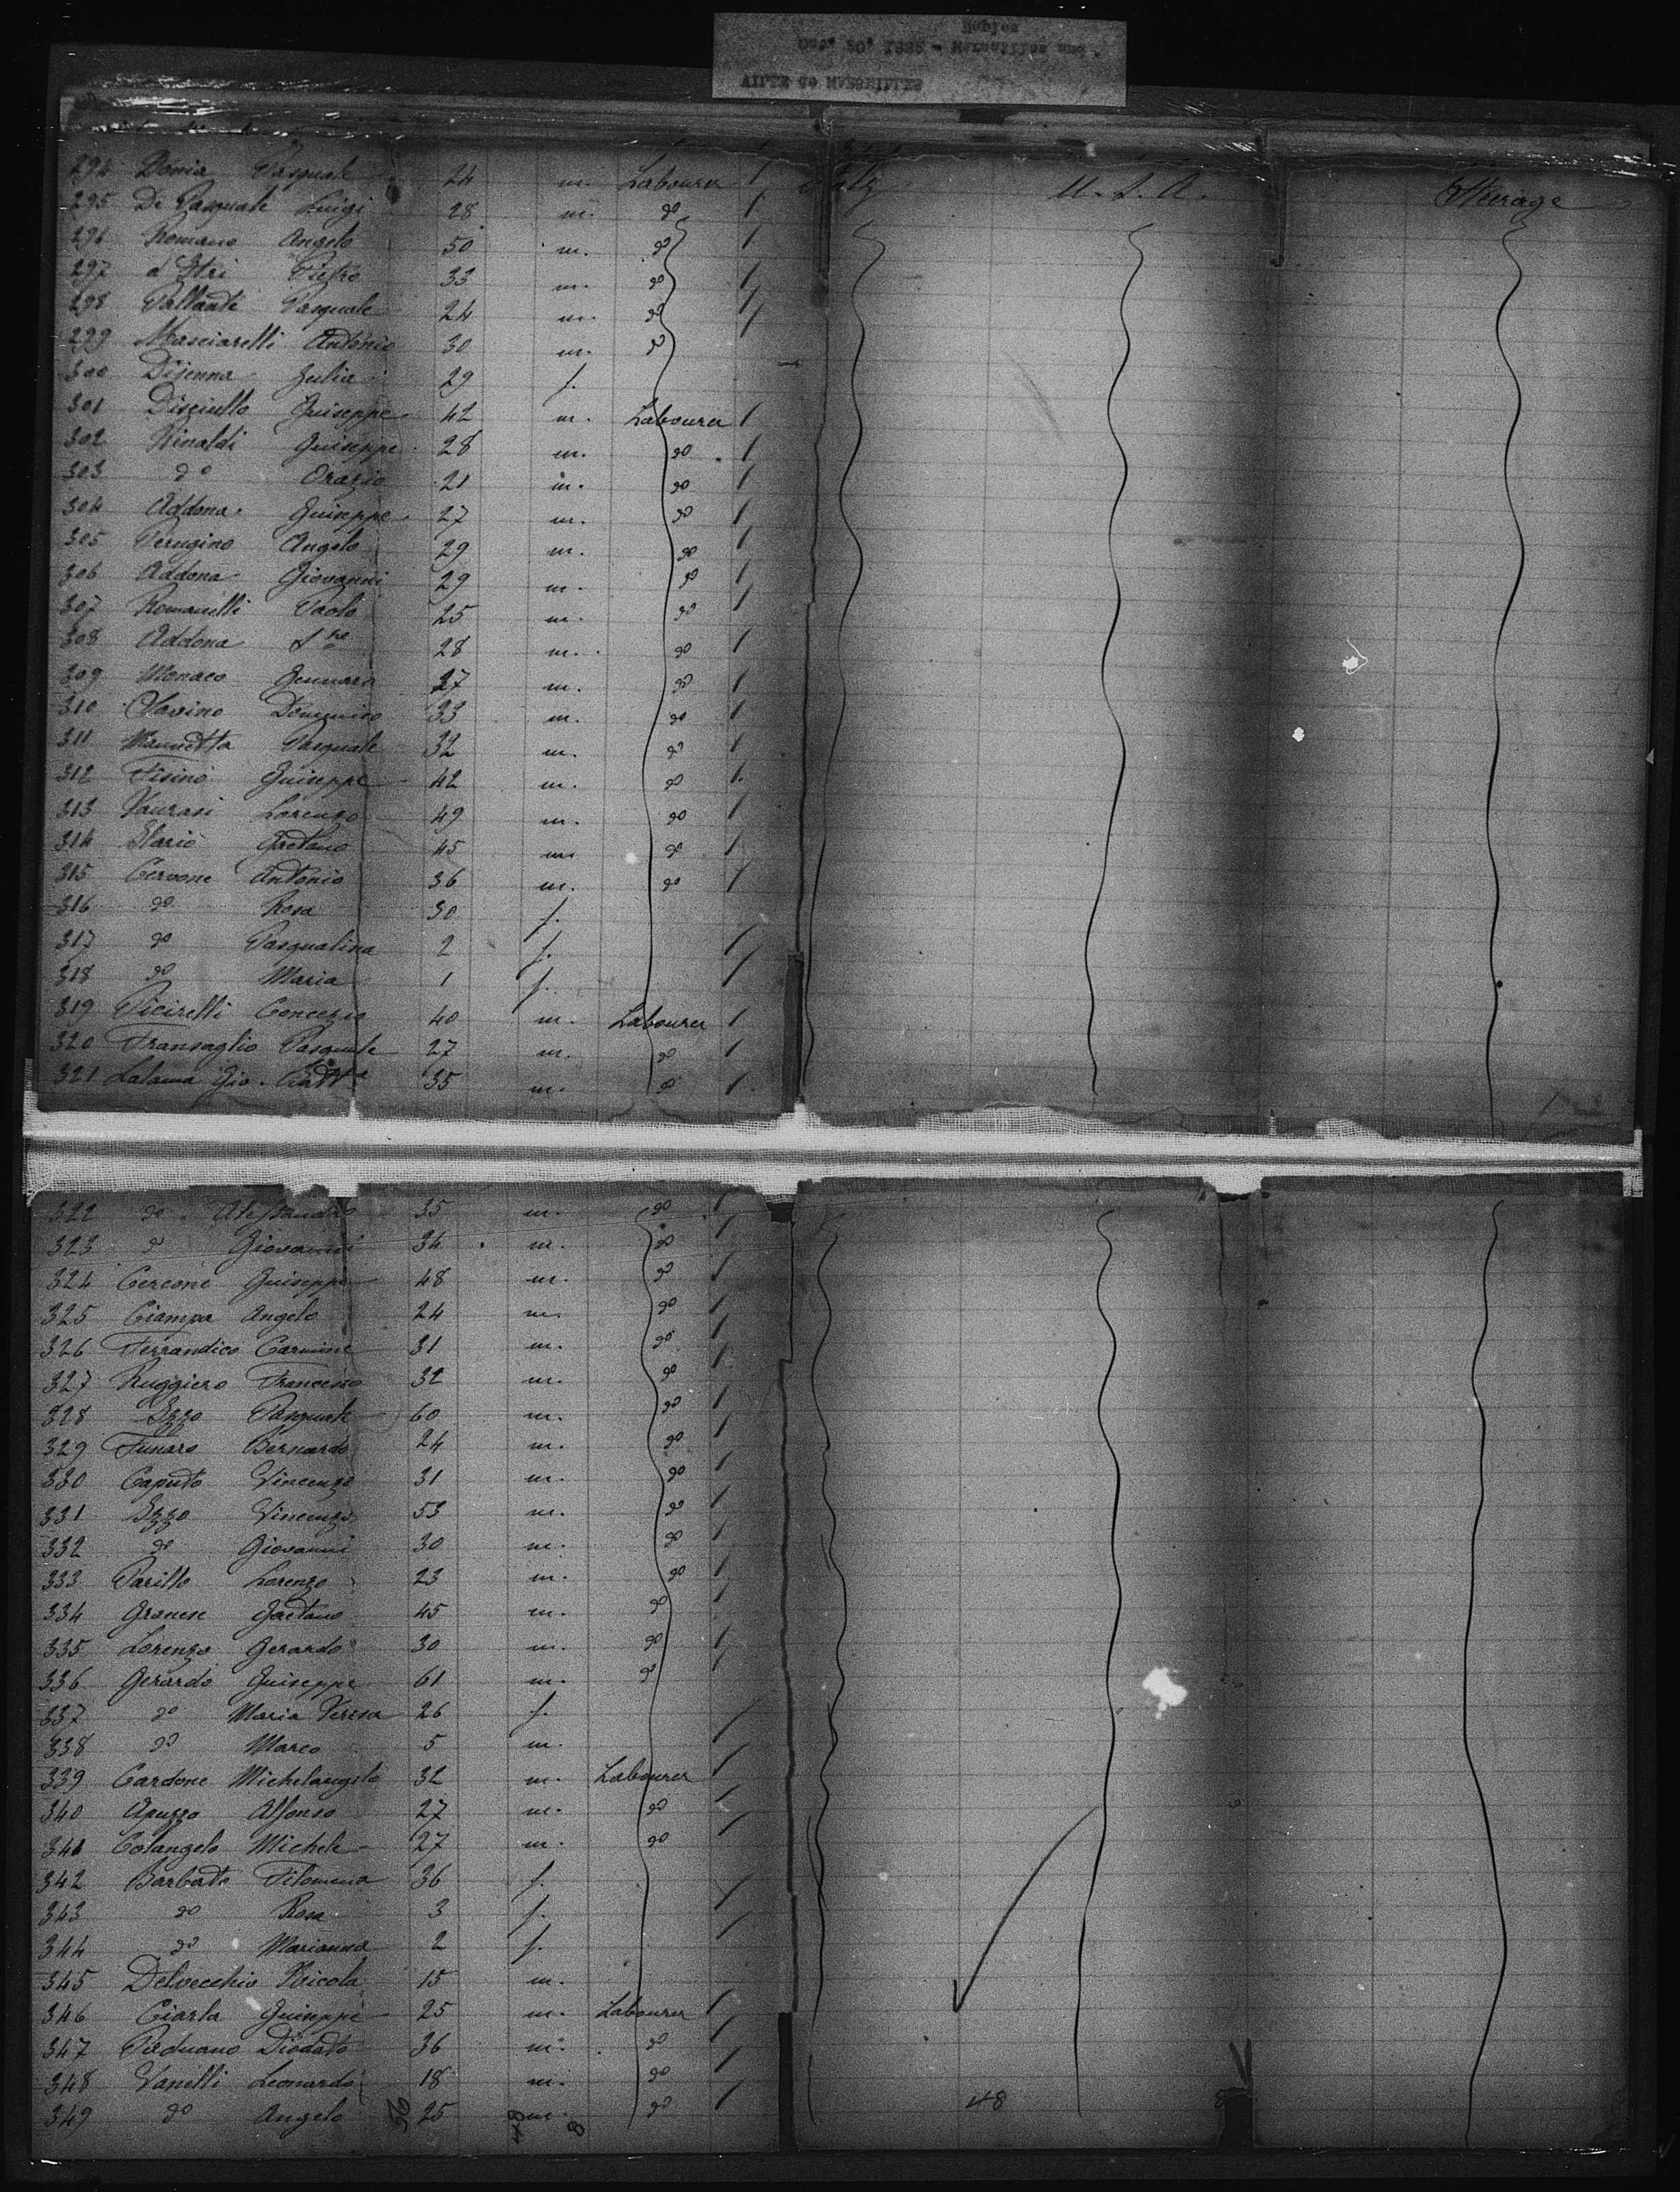 294 Donia Pasquale 24 m. Labourer Italy U.S.A. Steerage
295 De Pasquale Luigi 28 m. do
296 Romano Angelo 50 m. do
297 d'Itri Pietro 33 m. do
298 Pallante Pasquale 24 m. do
299 Masciarelli Antonio 30 m. do
300 Dijenna Julia 29 f.
301 Disciullo Guiseppe 42 m. Labourer
302 Rinaldi Guiseppe 28 m. do
303 do Orazio 21 m. do
304 Addona Guiseppe 27 m. do
305 Perugino Angelo 29 m. do
306 Addona Giovanni 29 m. do
307 Romanelli Paolo 25 m. do
308 Addona 28 m. do
309 Monaco Gennaro 27 m. do
310 Domenico 33 m. do
311 Pasquale 32 m. do
312 Fisino Guiseppe 42 m. do
313 Vaurasi Lorenzo 49 m. do
314 Ilario Gaetano 45 m. do
315 Cervone Antonio 36 m. do
316 do Rosa 30 f.
317 do Pasqualina 2 f.
318 do Maria 1 f.
319 Picirelli Concezio 40 m. Labourer
320 Fransaglio Pasquale 27 m. do
321 Lalama Gio. Batta 35 m. do
322 do Alessandro 35 m. do
323 do Giovanni 34 m. do
324 Cercone Guiseppe 48 m. do
325 Ciampa Angelo 24 m. do
326 Ferrandico Carmine 31 m. do
327 Ruggiero Francesco 32 m. do
328 Izzo Pasquale 60 m. do
329 Funaro Bernardo 24 m. do
330 Caputo Vincenzo 31 m. do
331 Izzo Vincenzo 53 m. do
332 do Giovanni 30 m. do
333 Parillo Lorenzo 23 m. do
334 Granese Gaetano 45 m. do
335 Lorenzo Gerardo 30 m. do
336 Gerardo Guiseppe 61 m. do
337 do Maria Teresa 26 f.
338 do Marco 5 m.
339 Cardone Michelangelo 32 m. Labourer
340 Apuzzo Alfonso 27 m. do
341 Colangelo Michele 27 m. do
342 Barbato Filomena 36 f.
343 do Rosa 3 f.
344 do Marianna 2 f.
345 Delvecchio Nicola 15 m.
346 Ciarla Guiseppe 25 m. Labourer
347 Paduano Diodato 36 m. do
348 Vanelli Leonardo 18 m. do
349 do Angelo 25 m. do 48 8